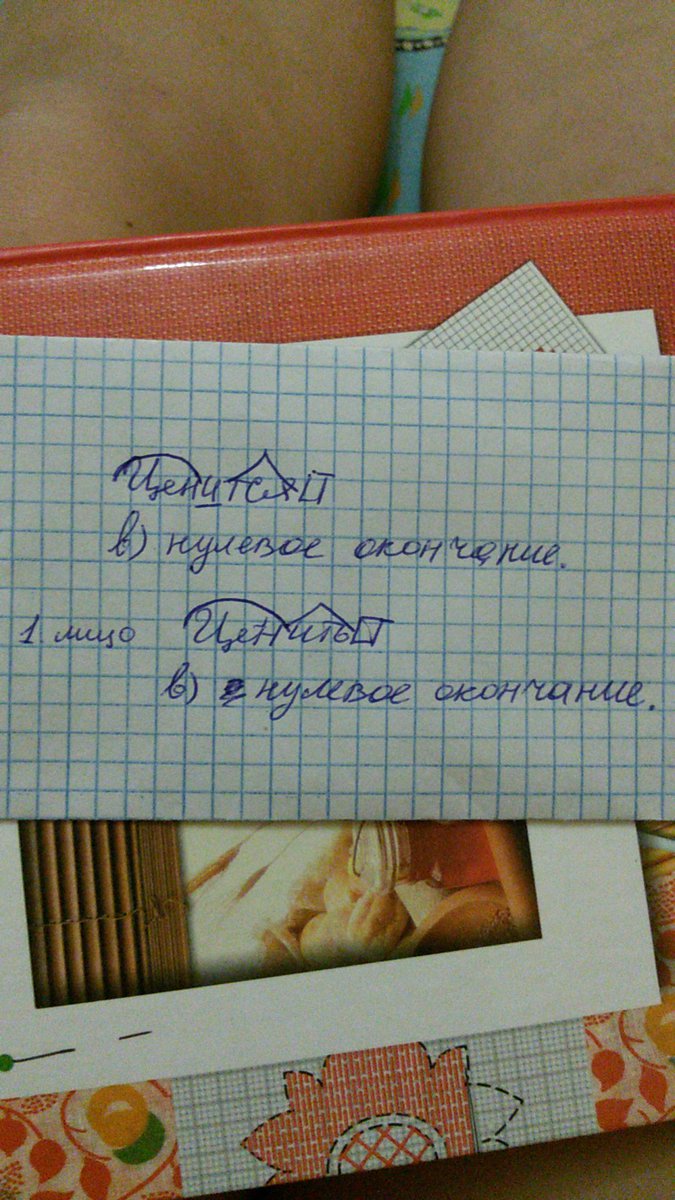 Ценится
в) нулевое окончание.
1 лицо Ценить
в) нулевое окончание.